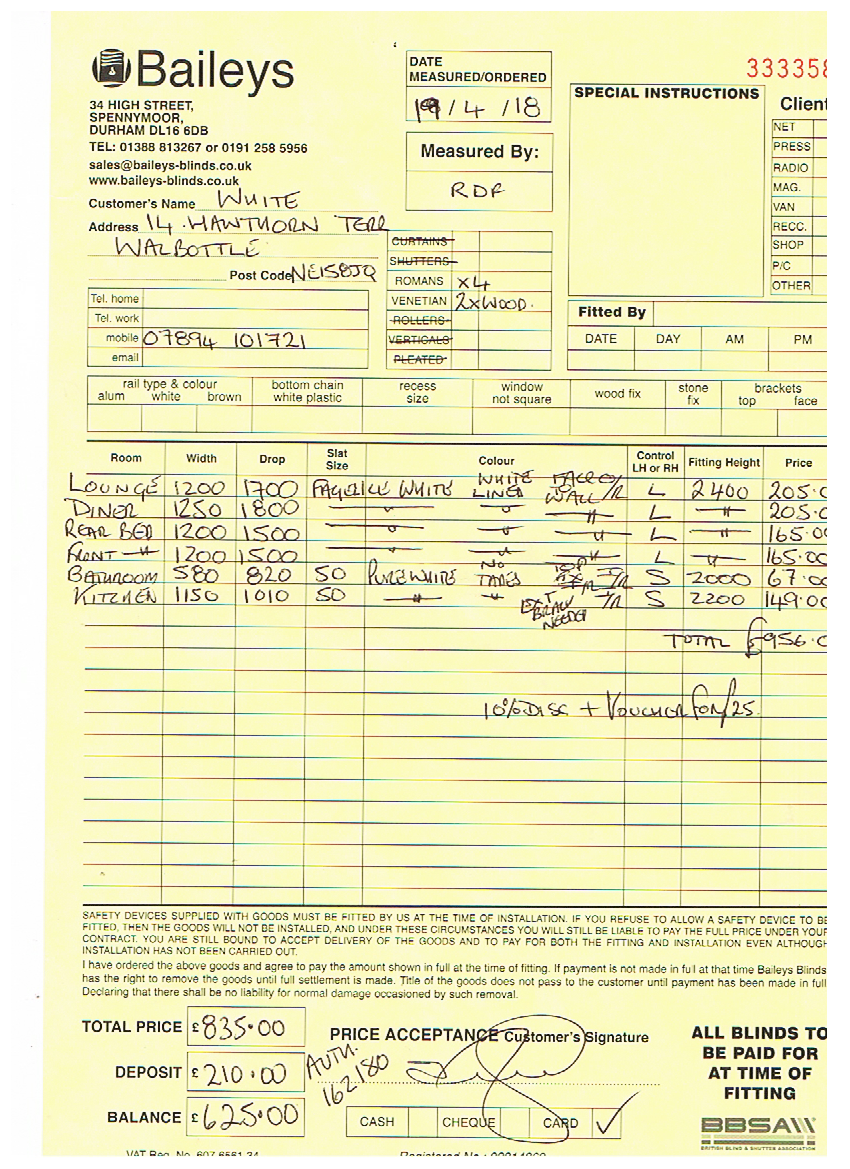 Baileys
34 HIGH STREET,
SPENNYMOOR,
DURHAM DL16 6DB
TEL: 01388 813267 or 0191 258 5956
sales@baileys-blinds.co.uk
www.baileys-blinds.co.uk
DATE
MEASURED/ORDERED
19/4/18
Measured By:
RDF
SPECIAL INSTRUCTIONS
333358
Client
NET
PRESS
RADIO
MAG.
VAN
RECC.
SHOP
P/C
OTHER
Customer's Name WHITE
Address 14 . HAWTHORN TERR
WALBOTTLE
Post Code NE158JQ
Tel. home
Tel. work
mobile 07894 101721
email
CURTAINS
SHUTTERS
ROMANS x4
VENETIAN 2xWOOD.
ROLLERS
VERTICALS
PLEATED
Fitted By
DATE DAY AM PM
rail type & colour bottom chain recess window wood fix stone brackets
alum white brown white plastic size not square fix top face
Room Width Drop Slat Size Colour Control LH or RH Fitting Height Price
LOUNGE 1200 1700 WHITE WHITE LINED WALL L 2400 205.0
DINER 1250 1800 " " " L " 205.0
REAR BED 1200 1500 " " " L " 165.00
FRONT " 1200 1500 " " " L " 165.00
BATHROOM 580 820 50 PURE WHITE NO TAPES S 2000 67.00
KITCHEN 1150 1010 50 " " EXT NEEDED S 2200 149.00
TOTAL £956.0
10% DISC + VOUCHER FOR /25.
SAFETY DEVICES SUPPLIED WITH GOODS MUST BE FITTED BY US AT THE TIME OF INSTALLATION. IF YOU REFUSE TO ALLOW A SAFETY DEVICE TO BE
FITTED, THEN THE GOODS WILL NOT BE INSTALLED, AND UNDER THESE CIRCUMSTANCES YOU WILL STILL BE LIABLE TO PAY THE FULL PRICE UNDER YOUR
CONTRACT. YOU ARE STILL BOUND TO ACCEPT DELIVERY OF THE GOODS AND TO PAY FOR BOTH THE FITTING AND INSTALLATION EVEN ALTHOUGH
INSTALLATION HAS NOT BEEN CARRIED OUT.
I have ordered the above goods and agree to pay the amount shown in full at the time of fitting. If payment is not made in full at that time Baileys Blinds
has the right to remove the goods until full settlement is made. Title of the goods does not pass to the customer until payment has been made in full
Declaring that there shall be no liability for normal damage occasioned by such removal.
TOTAL PRICE £835.00
DEPOSIT £210.00
BALANCE £625.00
PRICE ACCEPTANCE Customer's Signature
AUTH.
162180
CASH CHEQUE CARD ✓
ALL BLINDS TO
BE PAID FOR
AT TIME OF
FITTING
BBSA
BRITISH BLIND & SHUTTER ASSOCIATION
VAT Reg. No. 607 6561 34